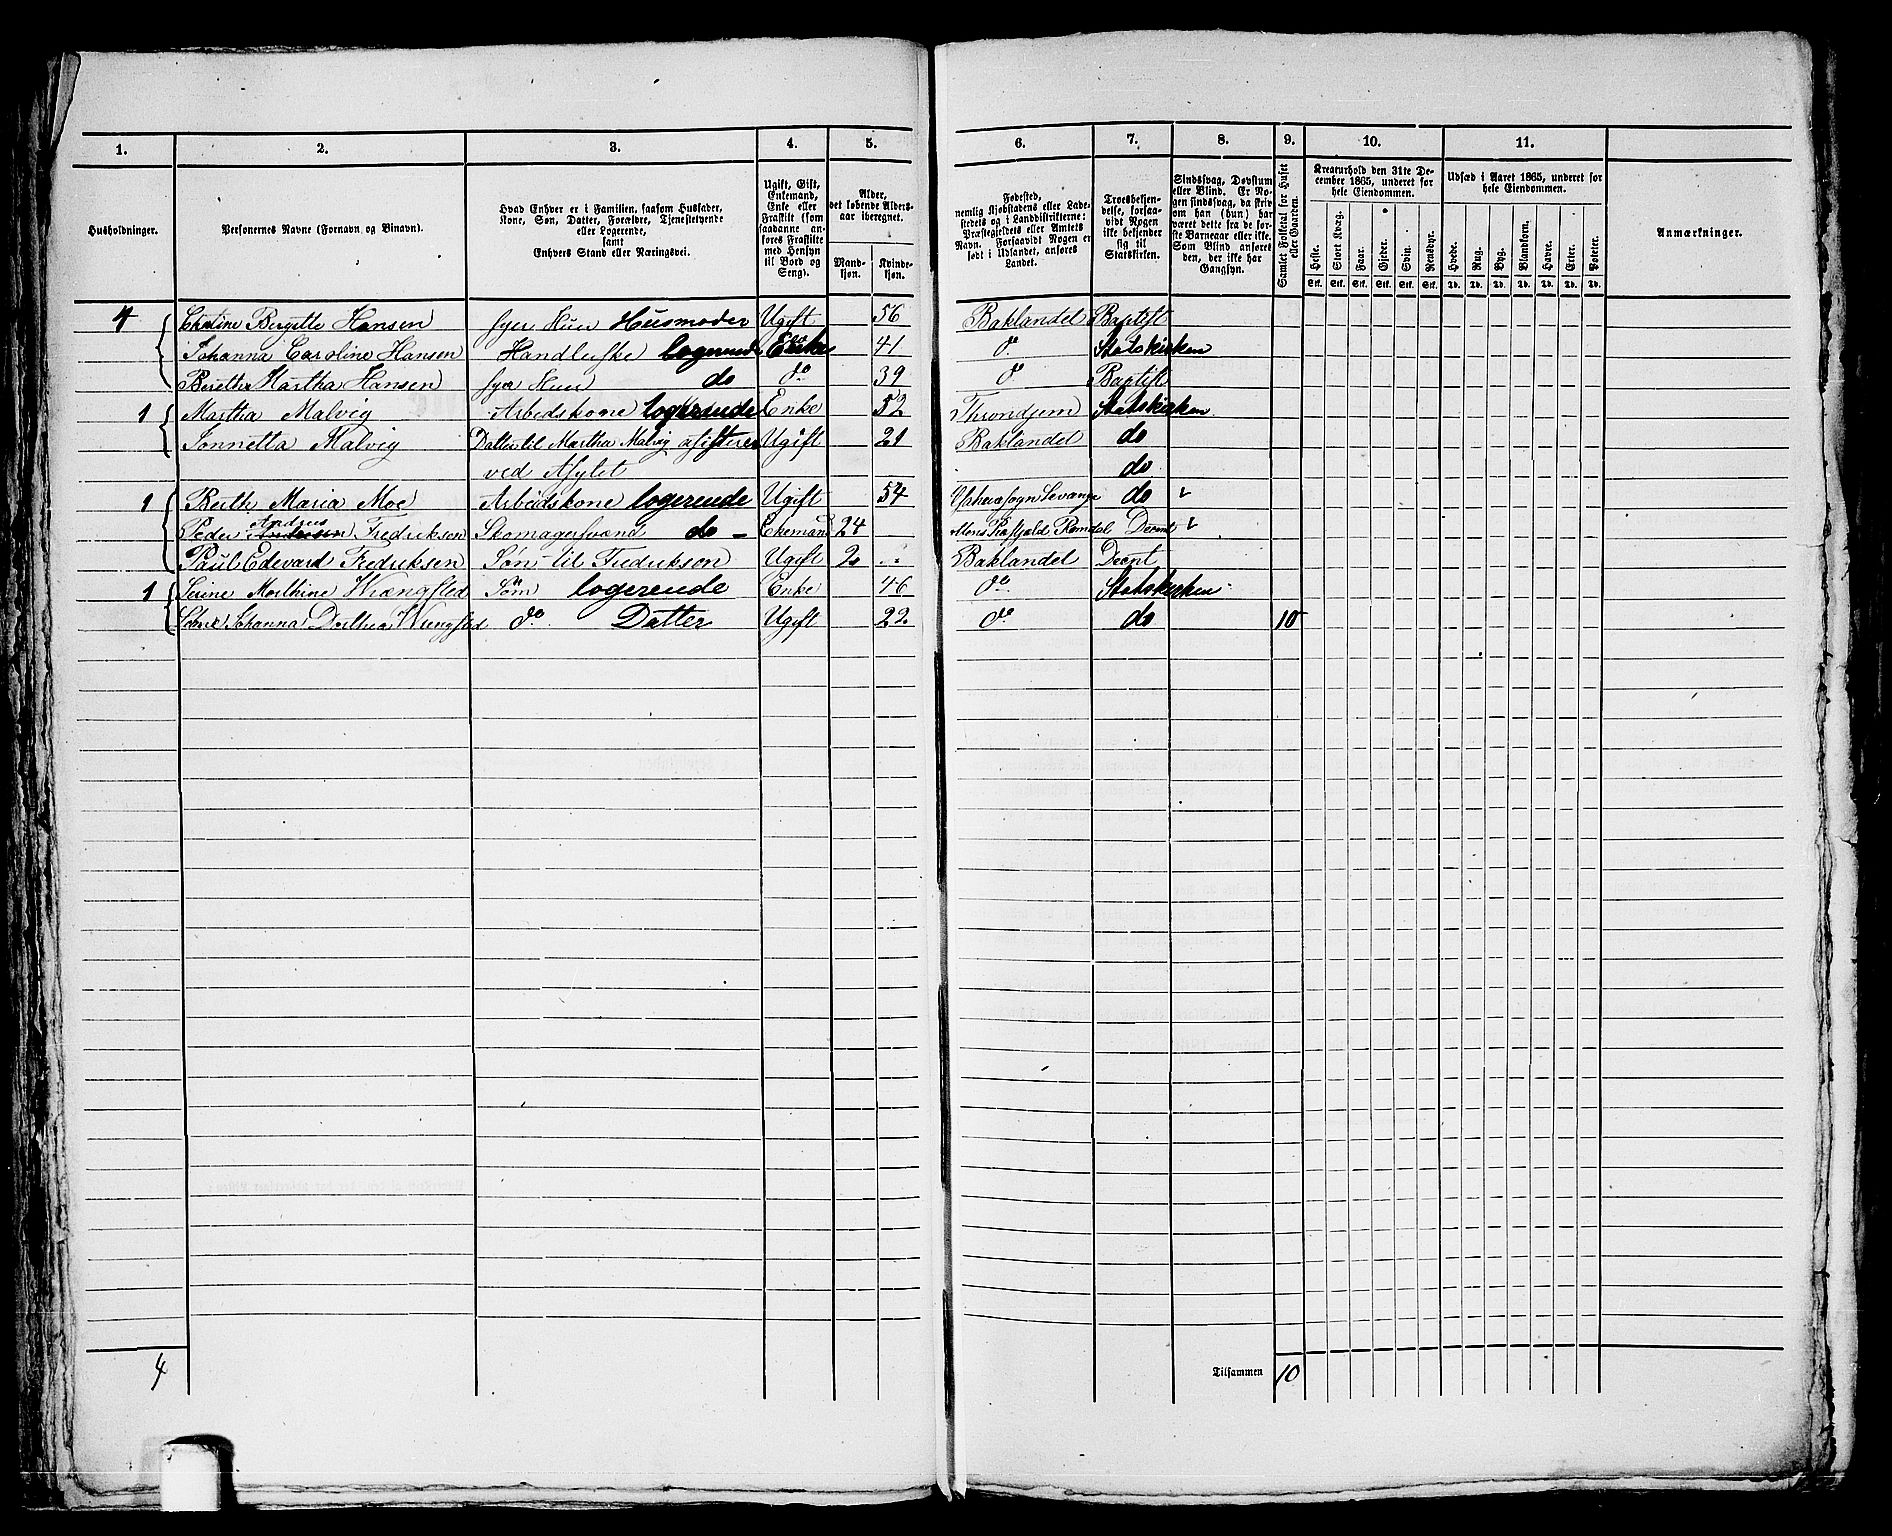 1. 2. 3. 4. 5. 6. 7. 8. 9. 10. 11.
Husholdninger.
Personernes Navne (Fornavn og Binavn).
Hvad Enhver er i Familien, saasom Husfader,
Kone, Søn, Datter, Forældre, Tjenestetyende
eller Logerende,
samt
Enhvers Stand eller Næringsvei.
Ugift, Gift,
Enkemand,
Enke eller
Fraskilt (som
saadanne an-
føres Fraskilte
med Hensyn
til Bord og
Seng).
Alder,
det løbende Alders-
aar iberegnet.
Mand-
kjøn.
Kvinde-
kjøn.
Fødested,
nemlig Kjøbstadens eller Lade-
stedets og i Landdistrikterne:
Præstegjeldets eller Amtets
Navn. Forsaavidt Nogen er
født i Udlandet, anføres
Landet.
Troesbekjen-
delse, forsaa-
vidt Nogen
ikke bekjender
sig til
Statskirken.
Sindssvag, Døvstum
eller Blind. Er No-
gen sindssvag, da skriv
om han (hun) har
været dette fra de før-
ste Barneaar eller ikke.
Som Blind anføres
den, der ikke har
Gangsyn.
Samlet Folketal for Huset
eller Gaarden.
Kreaturhold den 31te De-
cember 1865, underet for
hele Eiendommen.
Heste. Stort Kvæg. Faar. Gjeder. Svin. Rensdyr.
Stk. Stk. Stk. Stk. Stk. Stk.
Udsæd i Aaret 1865, underet for
hele Eiendommen.
Hvede. Rug. Byg. Blandkorn. Havre. Erter. Poteter.
Td. Td. Td. Td. Td. Td. Td.
Anmærkninger.
4 Bergitte Hansen syer Huer Husmoder Ugift 56 Baklandet Baptist
Johanna Caroline Hansen logerende 41 do. Statskirken
Beretha Martha Hansen syer Huer do do 39 do Baptist
1 Martha Malvig Arbeidskone logerende Enke 52 Throndjem Statskirken
Jonnetta Malvig Datter til Martha Malvig Ugift 21 Baklandet do
ved Asylet do
1 Berth Maria Moe Arbeidskone logerende Ugift 54 Levange do
Peder Andreas Fredriksen do 24 Decent
Paul Edevard Fredriksen Søn til Fredrikson Ugift 2 Baklandet Decent
1 Serine Marthine logerende Enke 46 do. Statskirken
Johanna Dorthea do. Datter Ugift 22 do. do 10
4
Tilsammen 10